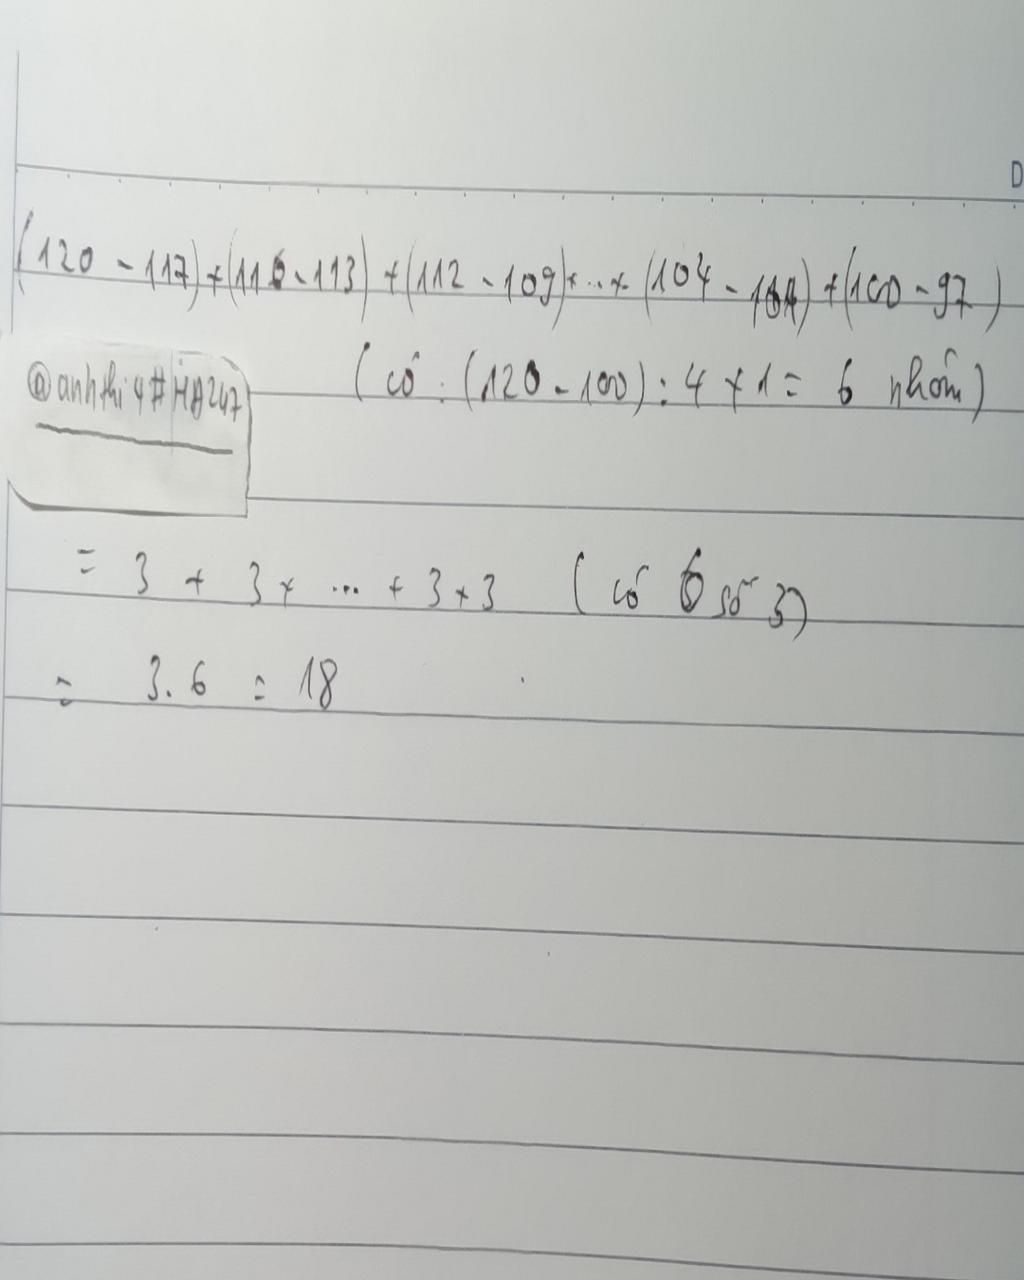 D
(120 - 117) + (116 - 113) + (112 - 109) + ... + (104 - 101) + (100 - 97)
@anhthi4#HA247
(có : (120 - 100) : 4 + 1 = 6 nhóm)
= 3 + 3 + ... + 3 + 3 (có 6 số 3)
= 3.6 = 18